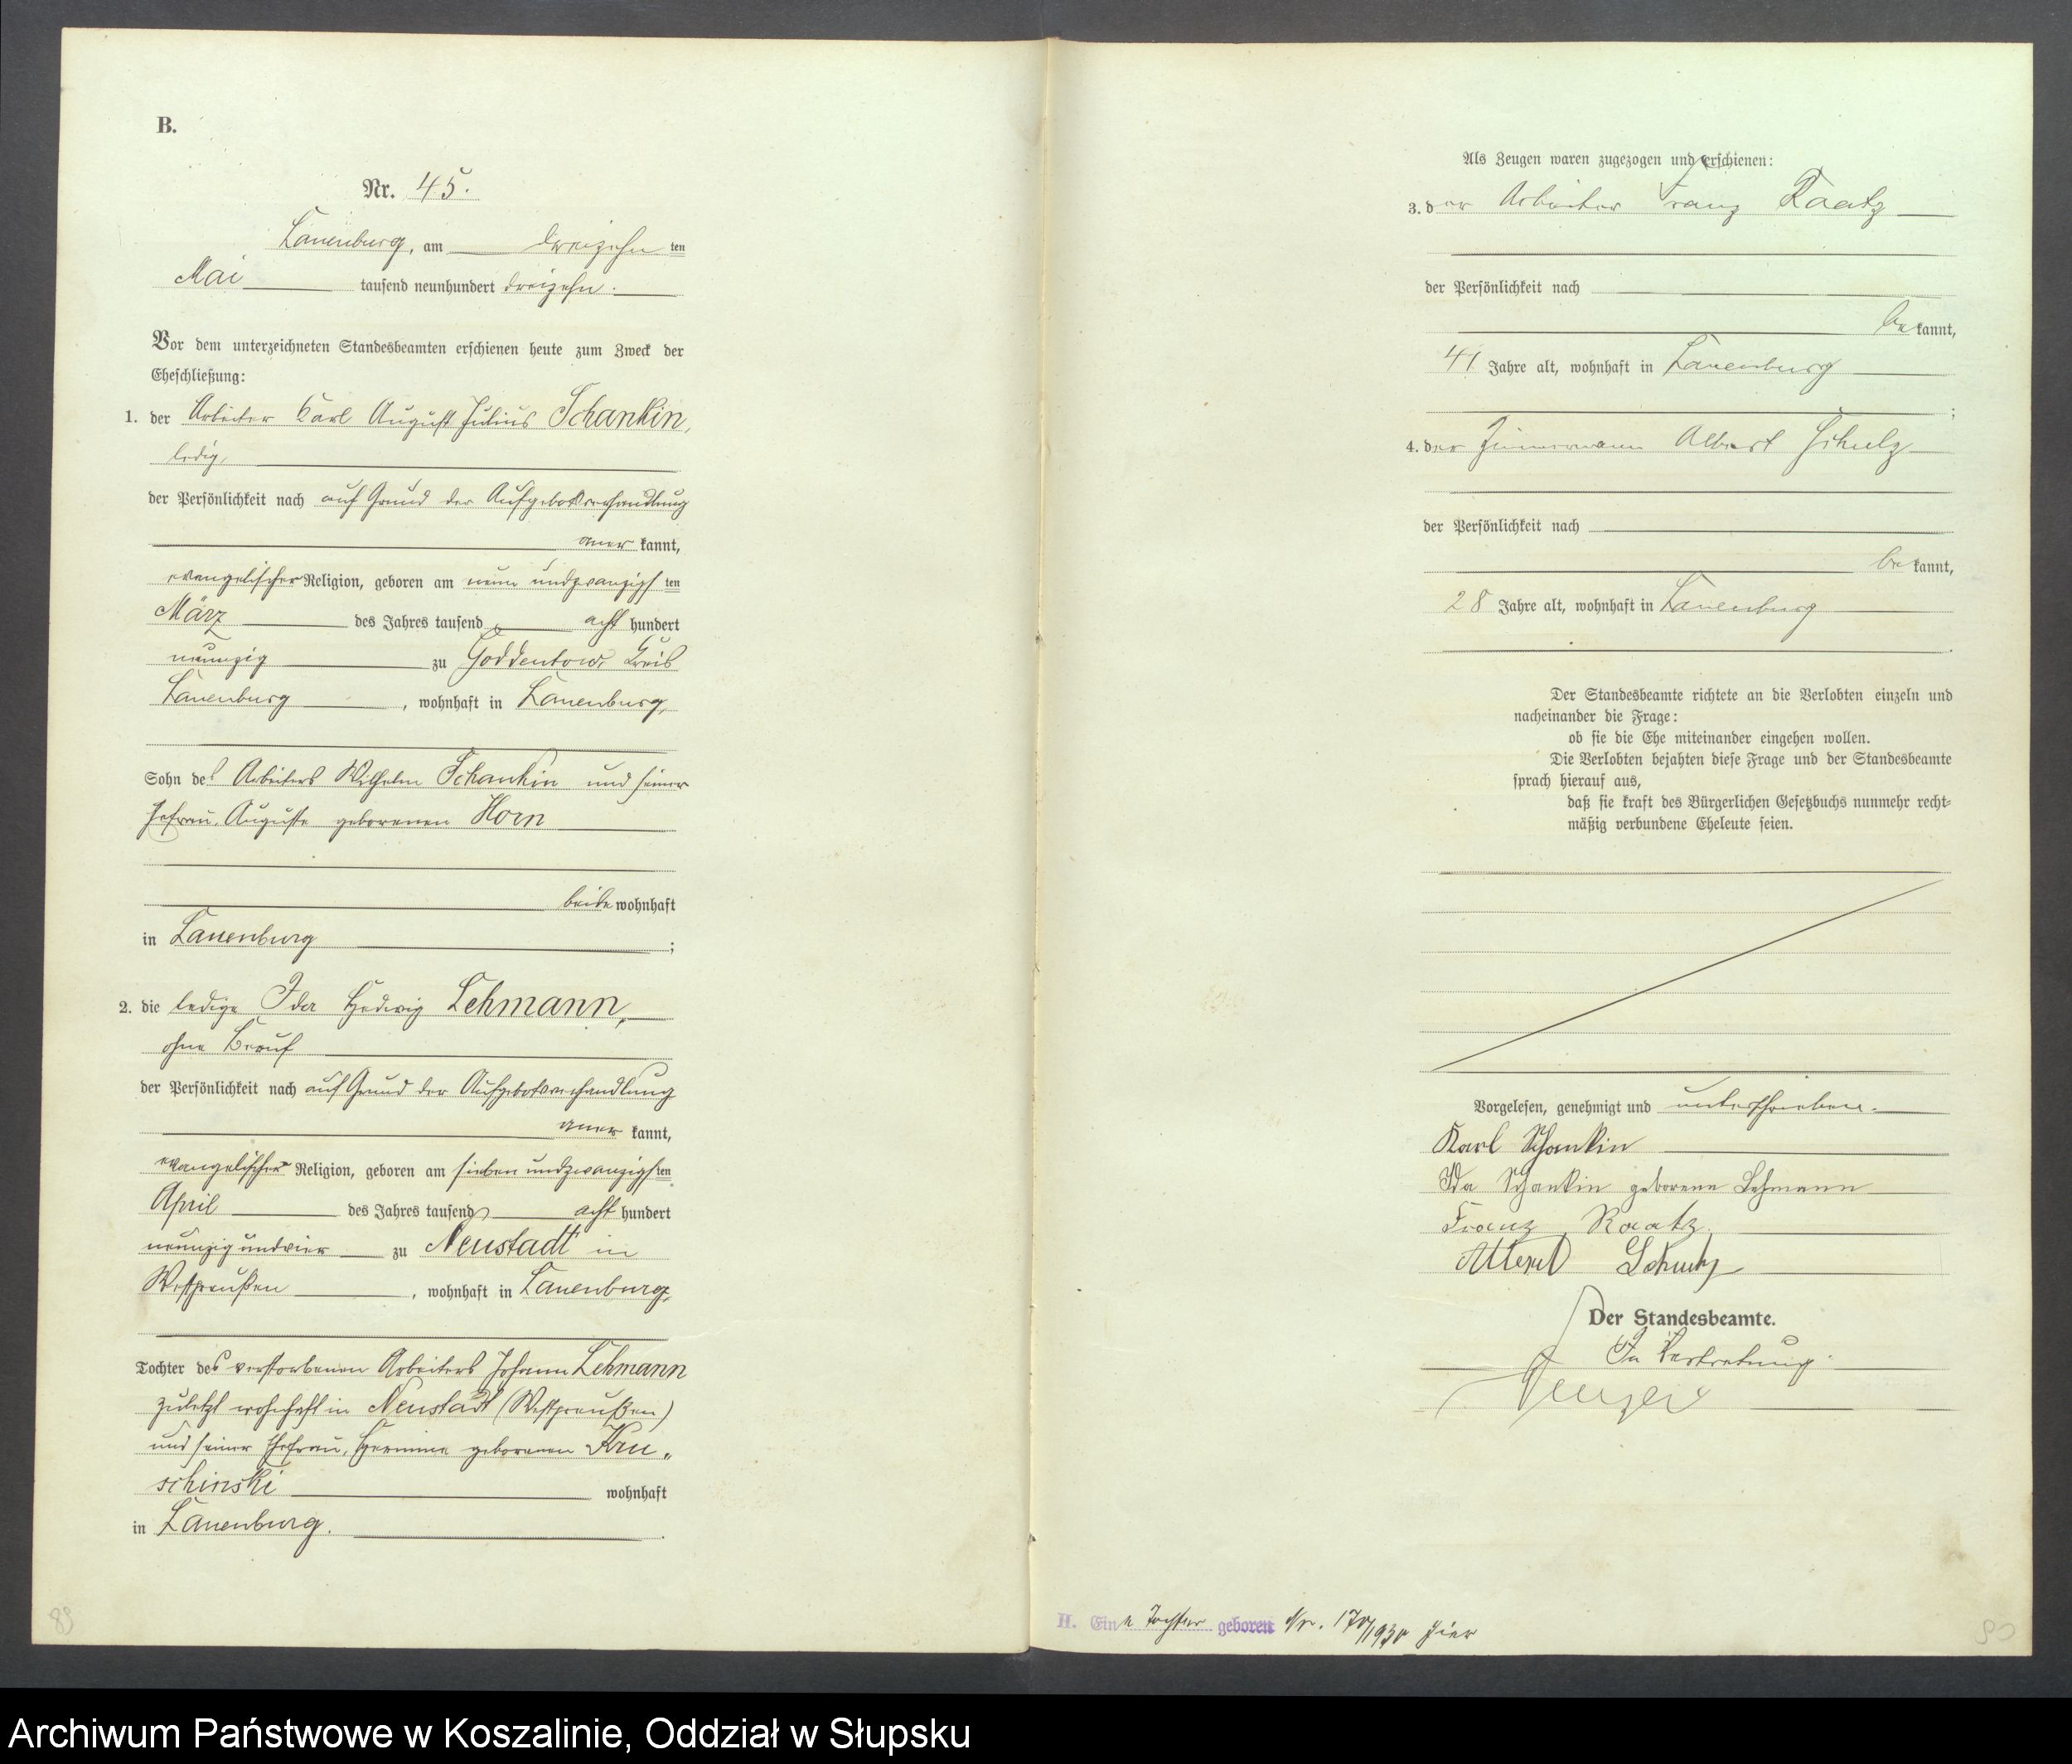 B.
Nr. 45.
Lauenburg, am dreizehn ten
Mai tausend neunhundert dreizehn.
Vor dem unterzeichneten Standesbeamten erschienen heute zum Zweck der
Eheschließung:
1. der Arbeiter Karl August Julius Schankin,
ledig,
der Persönlichkeit nach auf Grund der Aufgebotsverhandlung
aner kannt,
evangelischer Religion, geboren am neun undzwanzigs ten
März des Jahres tausend acht hundert
neunzig zu Goddentow, Kreis
Lauenburg, wohnhaft in Lauenburg,
Sohn des Arbeiters Wilhelm Schankin und seiner
Ehefrau, Auguste geborenen Horn
beide wohnhaft
in Lauenburg;
2. die ledige Ida Hedwig Lehmann,
ohne Beruf
der Persönlichkeit nach auf Grund der Aufgebotsverhandlung
aner kannt,
evangelischer Religion, geboren am sieben undzwanzigs ten
April des Jahres tausend acht hundert
neunzig und vier zu Neustadt in
Westpreußen, wohnhaft in Lauenburg,
Tochter des verstorbenen Arbeiters Johann Lehmann
zuletzt wohnhaft in Neustadt (Westpreußen)
und seiner Ehefrau, Hermine geborenen Kru„
schinski wohnhaft
in Lauenburg.
89
Als Zeugen waren zugezogen und erschienen:
3. der Arbeiter Franz Raatz
der Persönlichkeit nach
be kannt,
41 Jahre alt, wohnhaft in Lauenburg
;
4. der Zimmermann Albert Schulz
der Persönlichkeit nach
be kannt,
28 Jahre alt, wohnhaft in Lauenburg
.
Der Standesbeamte richtete an die Verlobten einzeln und
nacheinander die Frage:
ob sie die Ehe miteinander eingehen wollen.
Die Verlobten bejahten diese Frage und der Standesbeamte
sprach hierauf aus,
daß sie kraft des Bürgerlichen Gesetzbuchs nunmehr recht-
mäßig verbundene Eheleute seien.
Vorgelesen, genehmigt und unterschrieben.
Karl Schankin
Ida Schankin geborene Lehmann
Franz Raatz
Albert Schulz
Der Standesbeamte.
In Vertretung.
II. Eine Tochter geboren Nr. 170/1930 hier
90
Archiwum Państwowe w Koszalinie, Oddział w Słupsku